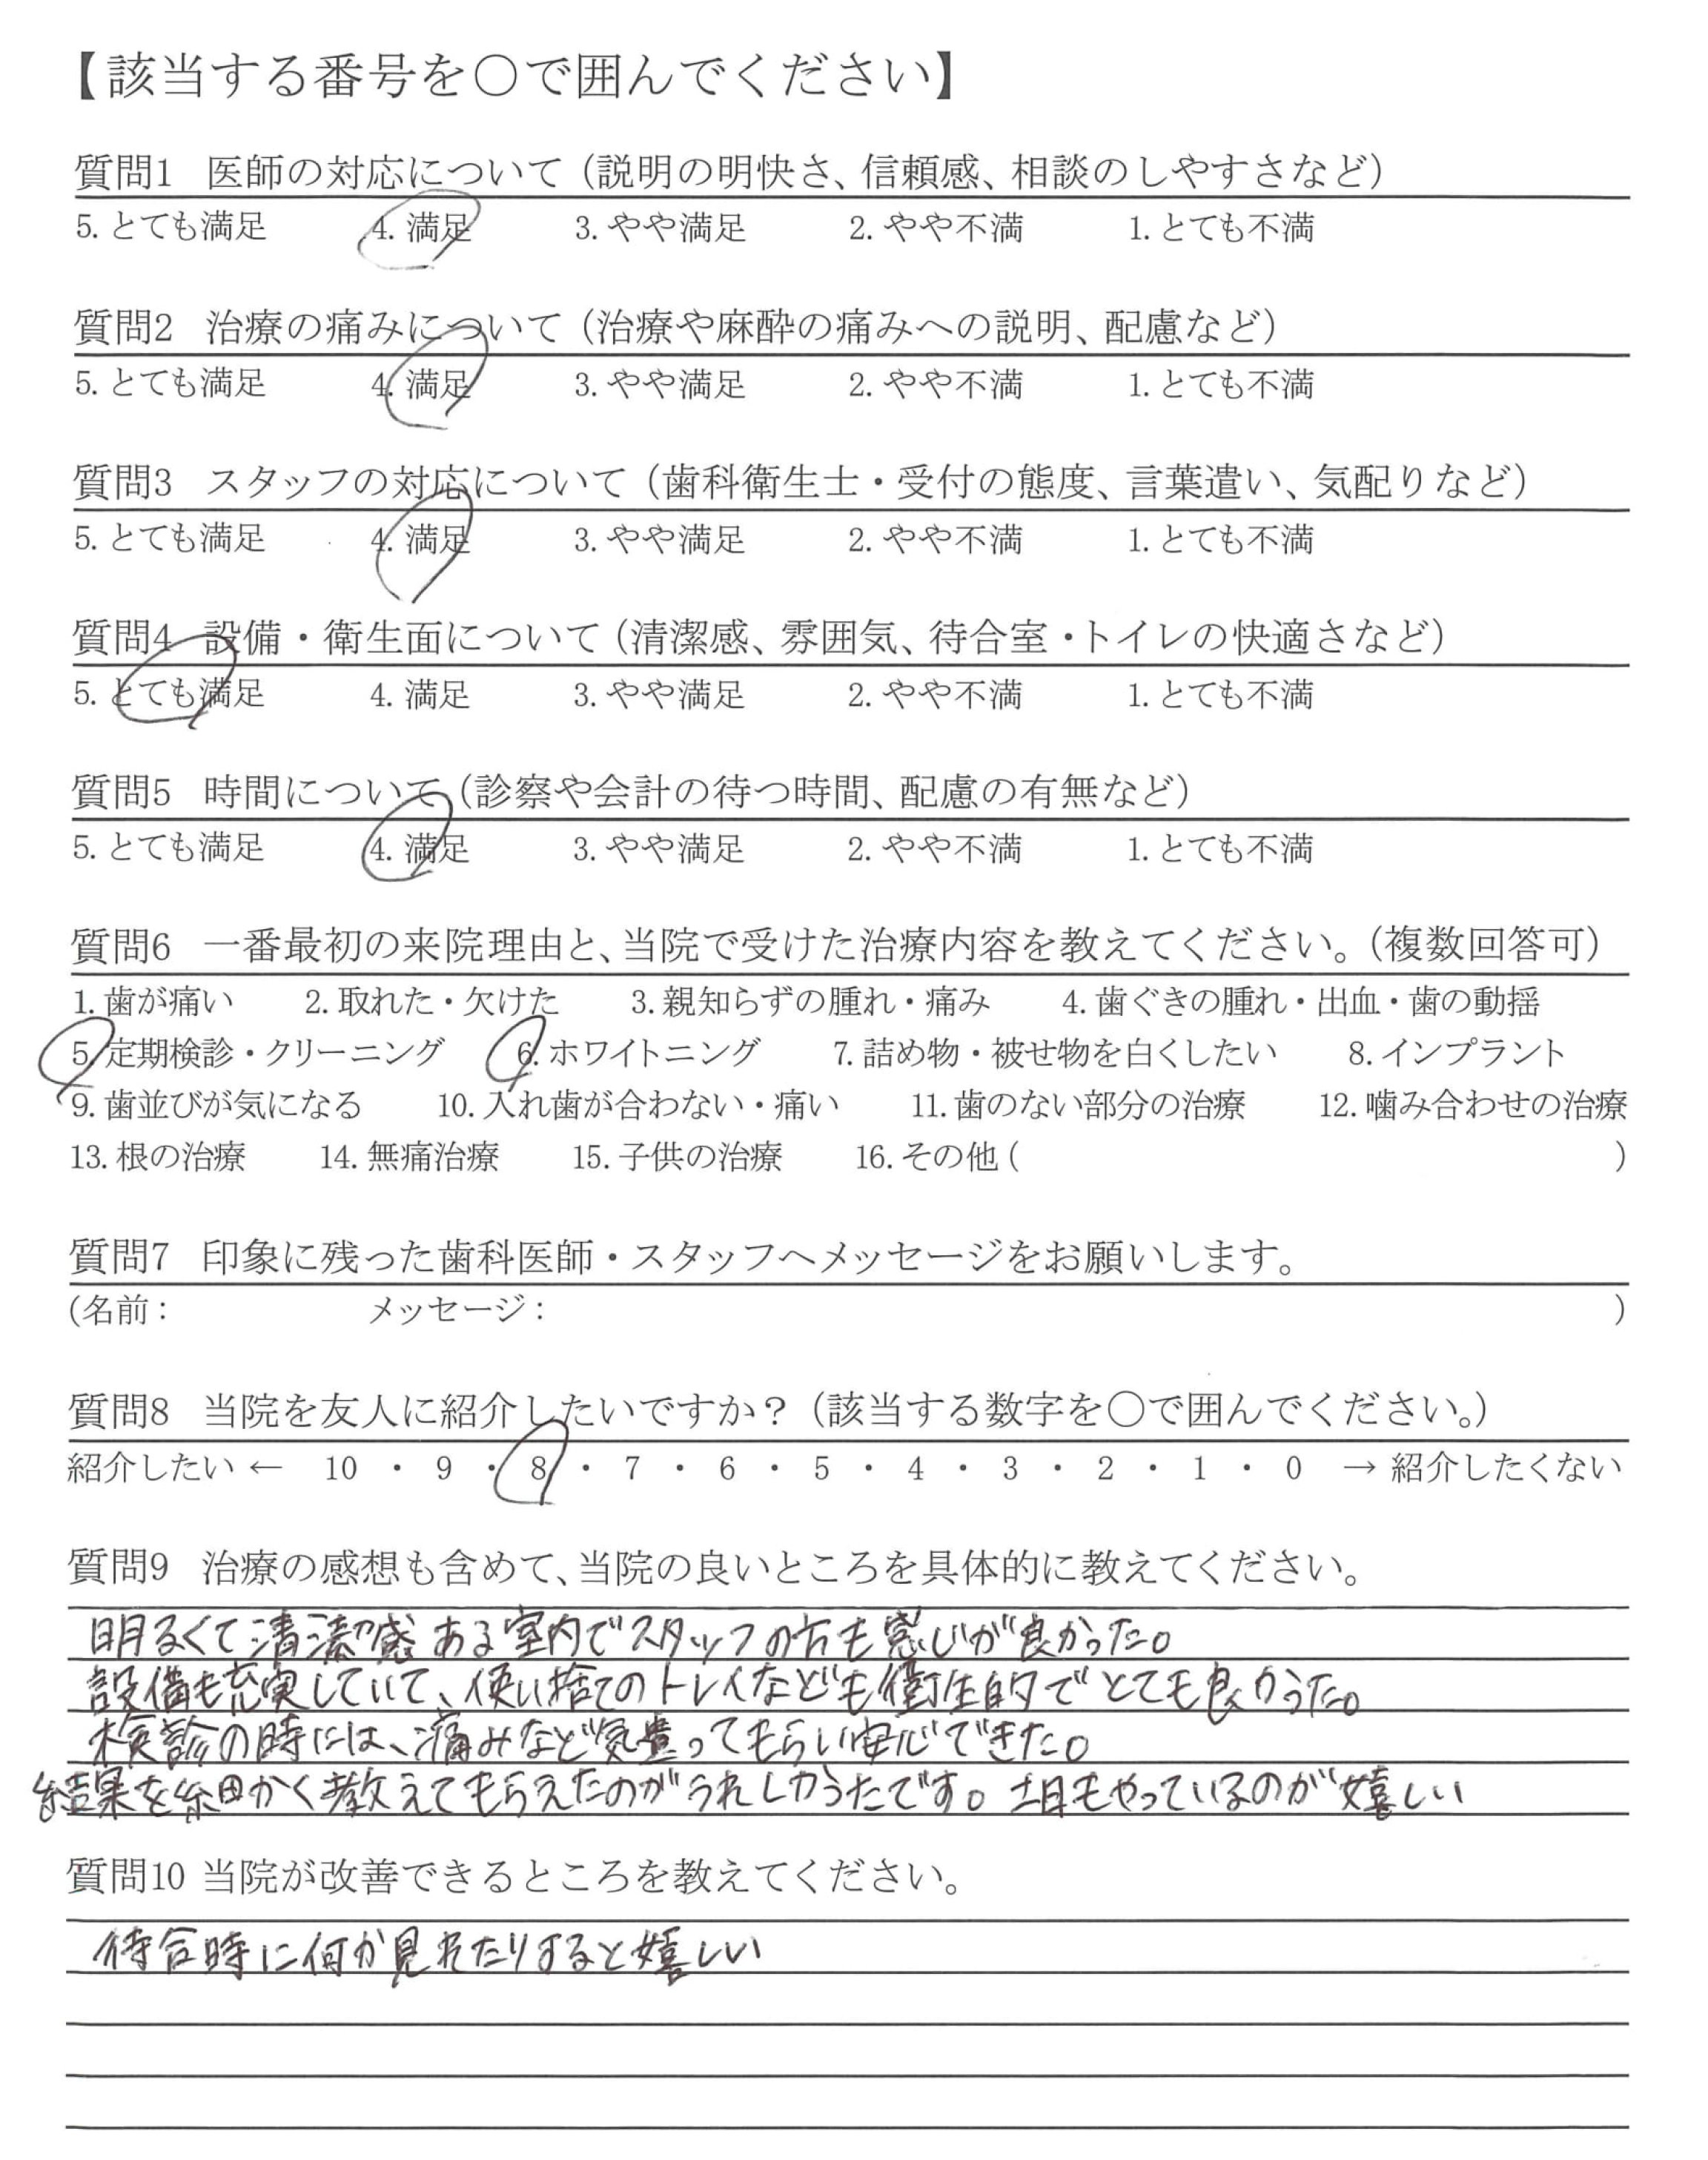 【該当する番号を〇で囲んでください】
質問1 医師の対応について（説明の明快さ、信頼感、相談のしやすさなど）
5. とても満足 4. 満足 3. やや満足 2. やや不満 1. とても不満
質問2 治療の痛みについて（治療や麻酔の痛みへの説明、配慮など）
5. とても満足 4. 満足 3. やや満足 2. やや不満 1. とても不満
質問3 スタッフの対応について（歯科衛生士・受付の態度、言葉遣い、気配りなど）
5. とても満足 4. 満足 3. やや満足 2. やや不満 1. とても不満
質問4 設備・衛生面について（清潔感、雰囲気、待合室・トイレの快適さなど）
5. とても満足 4. 満足 3. やや満足 2. やや不満 1. とても不満
質問5 時間について（診察や会計の待つ時間、配慮の有無など）
5. とても満足 4. 満足 3. やや満足 2. やや不満 1. とても不満
質問6 一番最初の来院理由と、当院で受けた治療内容を教えてください。（複数回答可）
1. 歯が痛い 2. 取れた・欠けた 3. 親知らずの腫れ・痛み 4. 歯ぐきの腫れ・出血・歯の動揺
5. 定期検診・クリーニング 6. ホワイトニング 7. 詰め物・被せ物を白くしたい 8. インプラント
9. 歯並びが気になる 10. 入れ歯が合わない・痛い 11. 歯のない部分の治療 12. 噛み合わせの治療
13. 根の治療 14. 無痛治療 15. 子供の治療 16. その他（ ）
質問7 印象に残った歯科医師・スタッフへメッセージをお願いします。
（名前： メッセージ： ）
質問8 当院を友人に紹介したいですか？（該当する数字を〇で囲んでください。）
紹介したい ← 10 ・ 9 ・ 8 ・ 7 ・ 6 ・ 5 ・ 4 ・ 3 ・ 2 ・ 1 ・ 0 → 紹介したくない
質問9 治療の感想も含めて、当院の良いところを具体的に教えてください。
明るくて清潔感ある室内でスタッフの方も感じが良かった。
設備も充実していて、使い捨てのトレイなども衛生的でとても良かった。
検診の時には、痛みなど気遣ってもらい安心できた。
結果を細かく教えてもらえたのがうれしかったです。土日もやっているのが嬉しい
質問10 当院が改善できるところを教えてください。
待合時に何か見れたりすると嬉しい